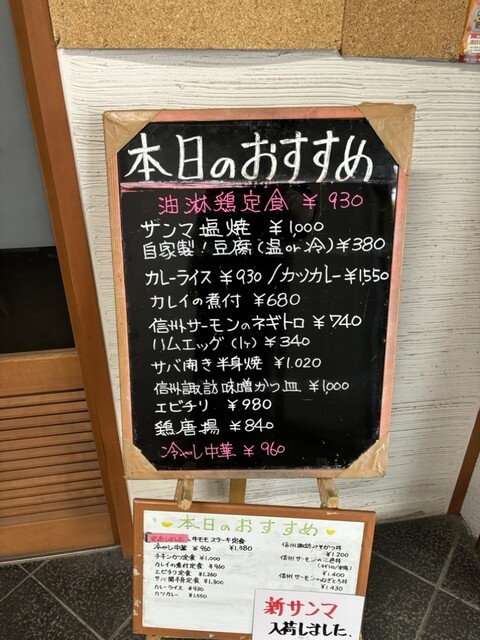 本日のおすすめ
油淋鶏定食 ¥930
サンマ塩焼 ¥1,000
自家製！豆腐(温or冷)¥380
カレーライス ¥930/カツカレー¥1,550
カレイの煮付 ¥680
信州サーモンのネギトロ ¥740
ハムエッグ(1ヶ) ¥340
サバ開き半身焼 ¥1.020
信州諏訪味噌かつ皿 ¥1,000
エビチリ ¥980
鶏唐揚 ¥840
冷やし中華 ¥960
本日のおすすめ
牛モモステーキ定食
¥1,380
冷やし中華 ¥960
チキンカツ定食 ¥1,000
カレイの煮付定食 ¥980
エビチリ定食 ¥1,260
サバ開半身定食 ¥1,300
カレーライス ¥930
カツカレー ¥1,550
信州諏訪みそかつ丼
¥1.200
信州サーモンの三色丼
¥1.400
信州サーモンのねぎとろ丼
¥1.430
新サンマ
入荷しました。